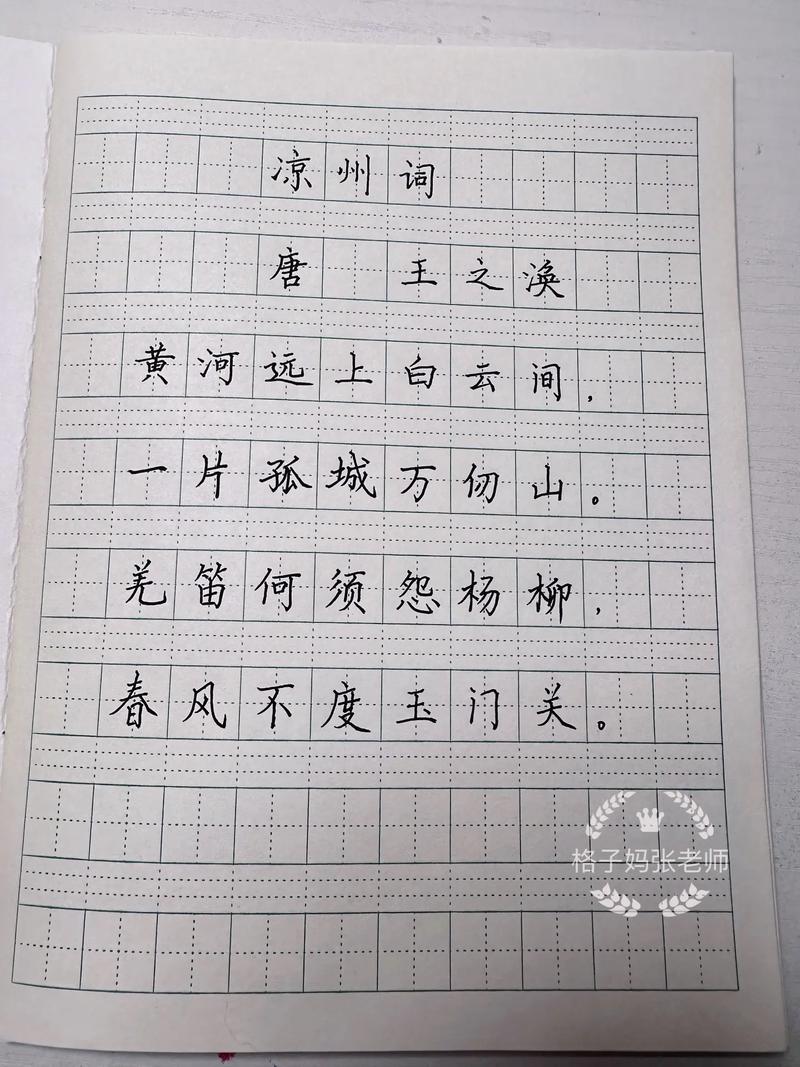 凉州词
唐 王之涣
黄河远上白云间，
一片孤城万仞山。
羌笛何须怨杨柳，
春风不度玉门关。
格子妈张老师